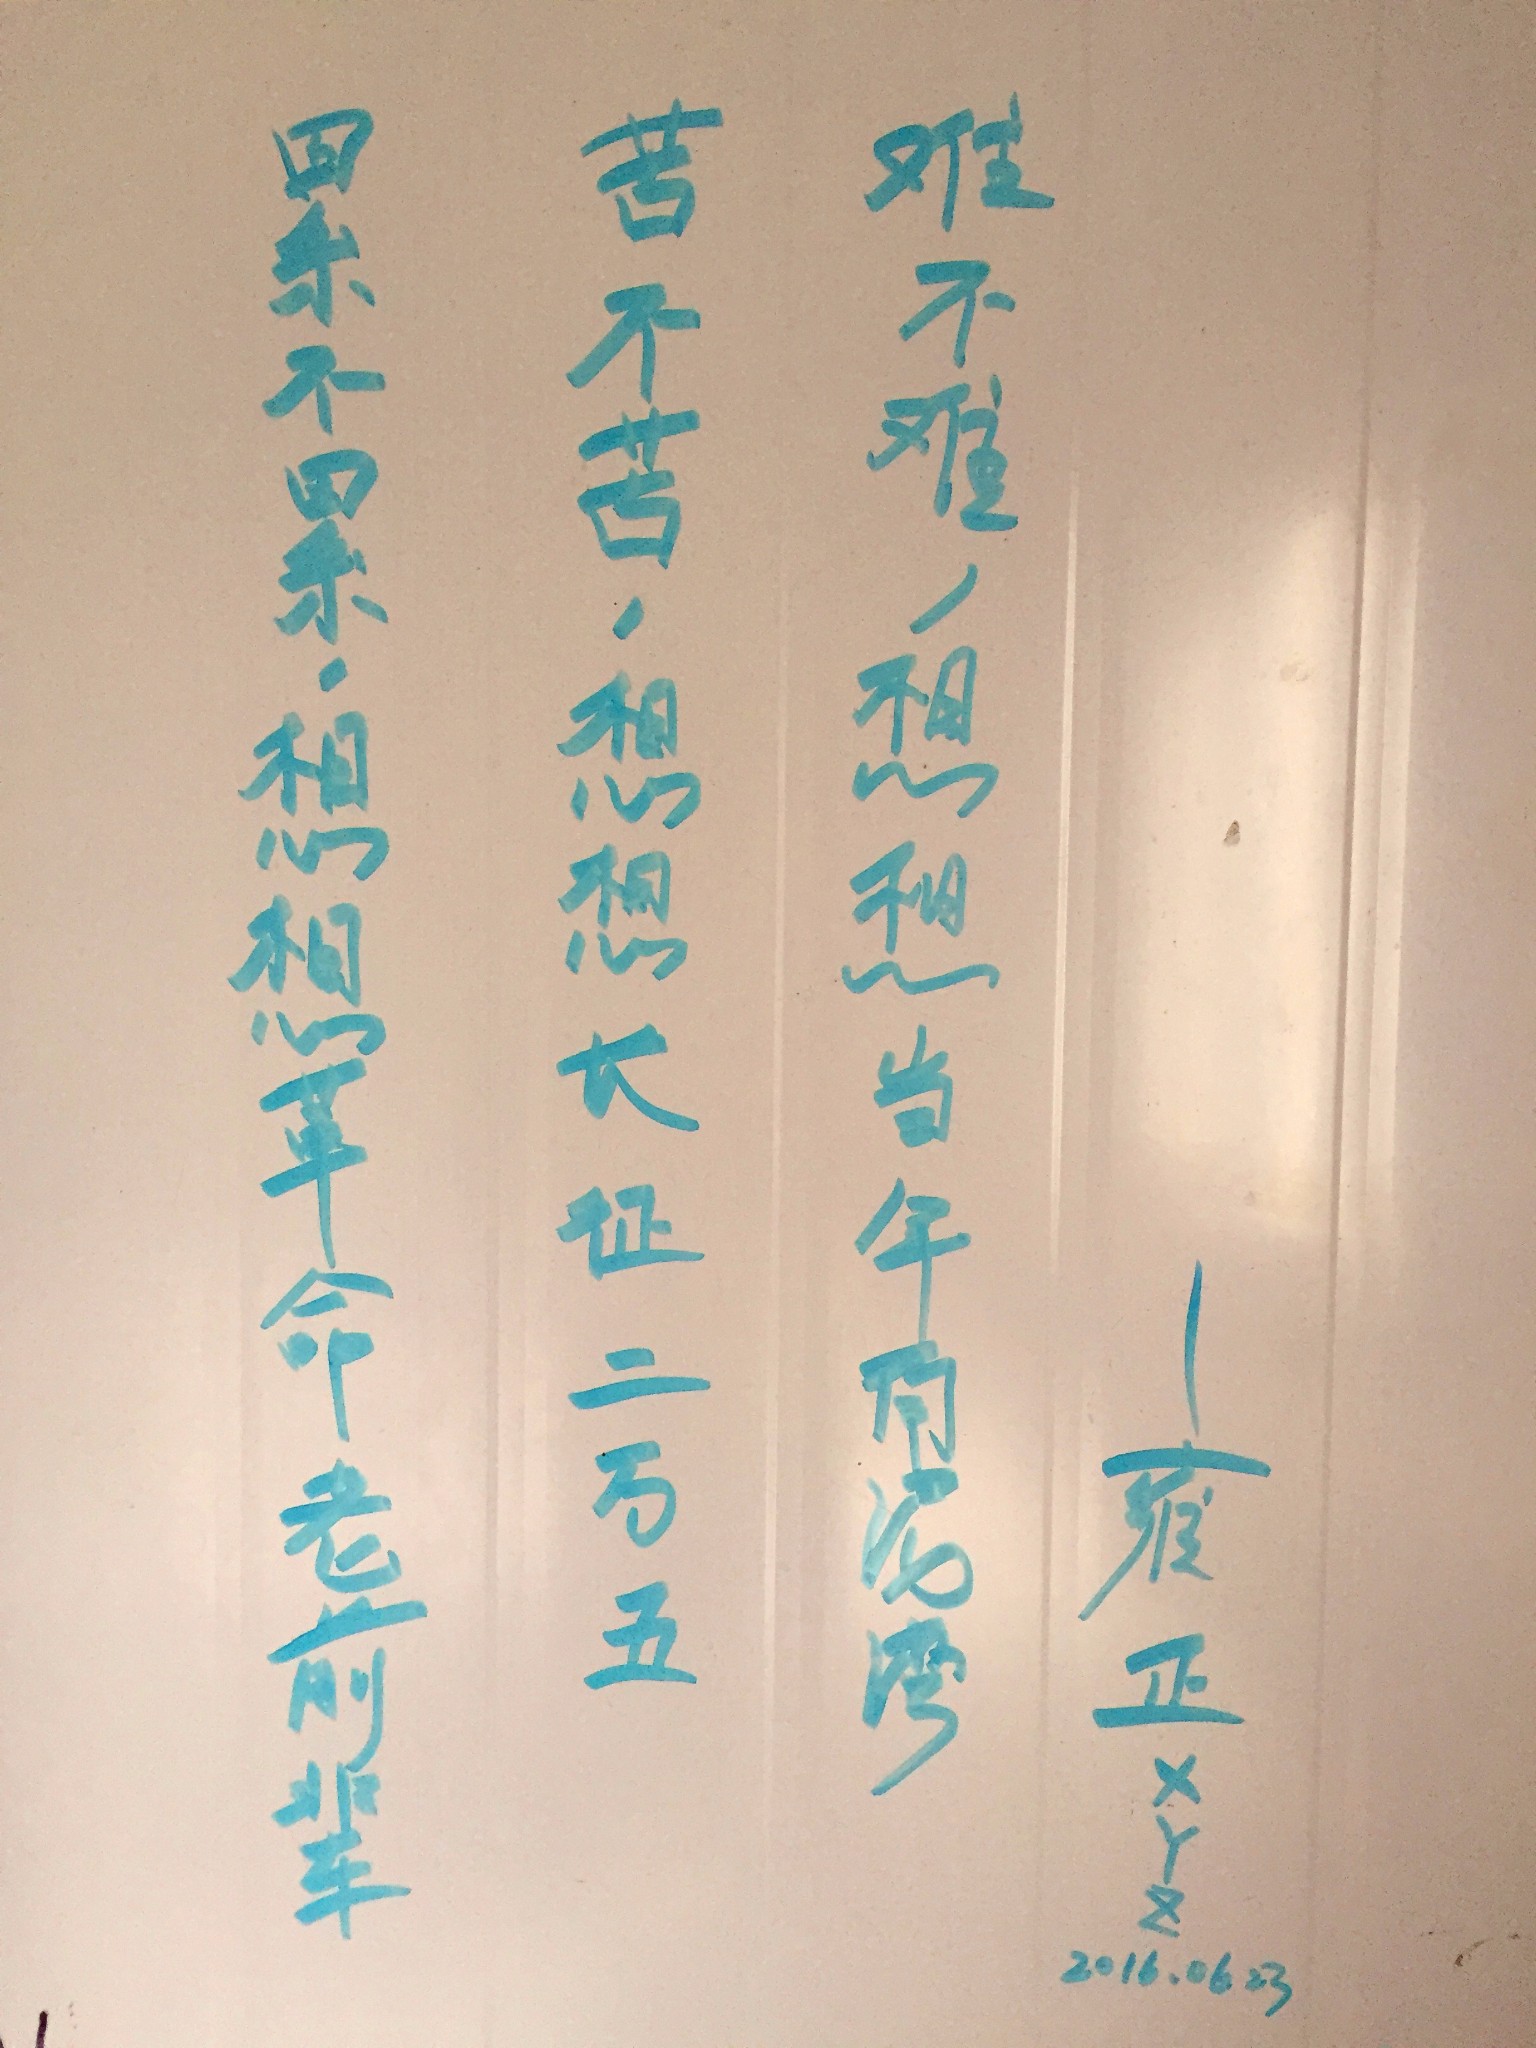 累不累，想想革命老前辈
苦不苦，想想长征二万五
难不难，想想当年南泥湾
—雍正XYZ
2016.06.23